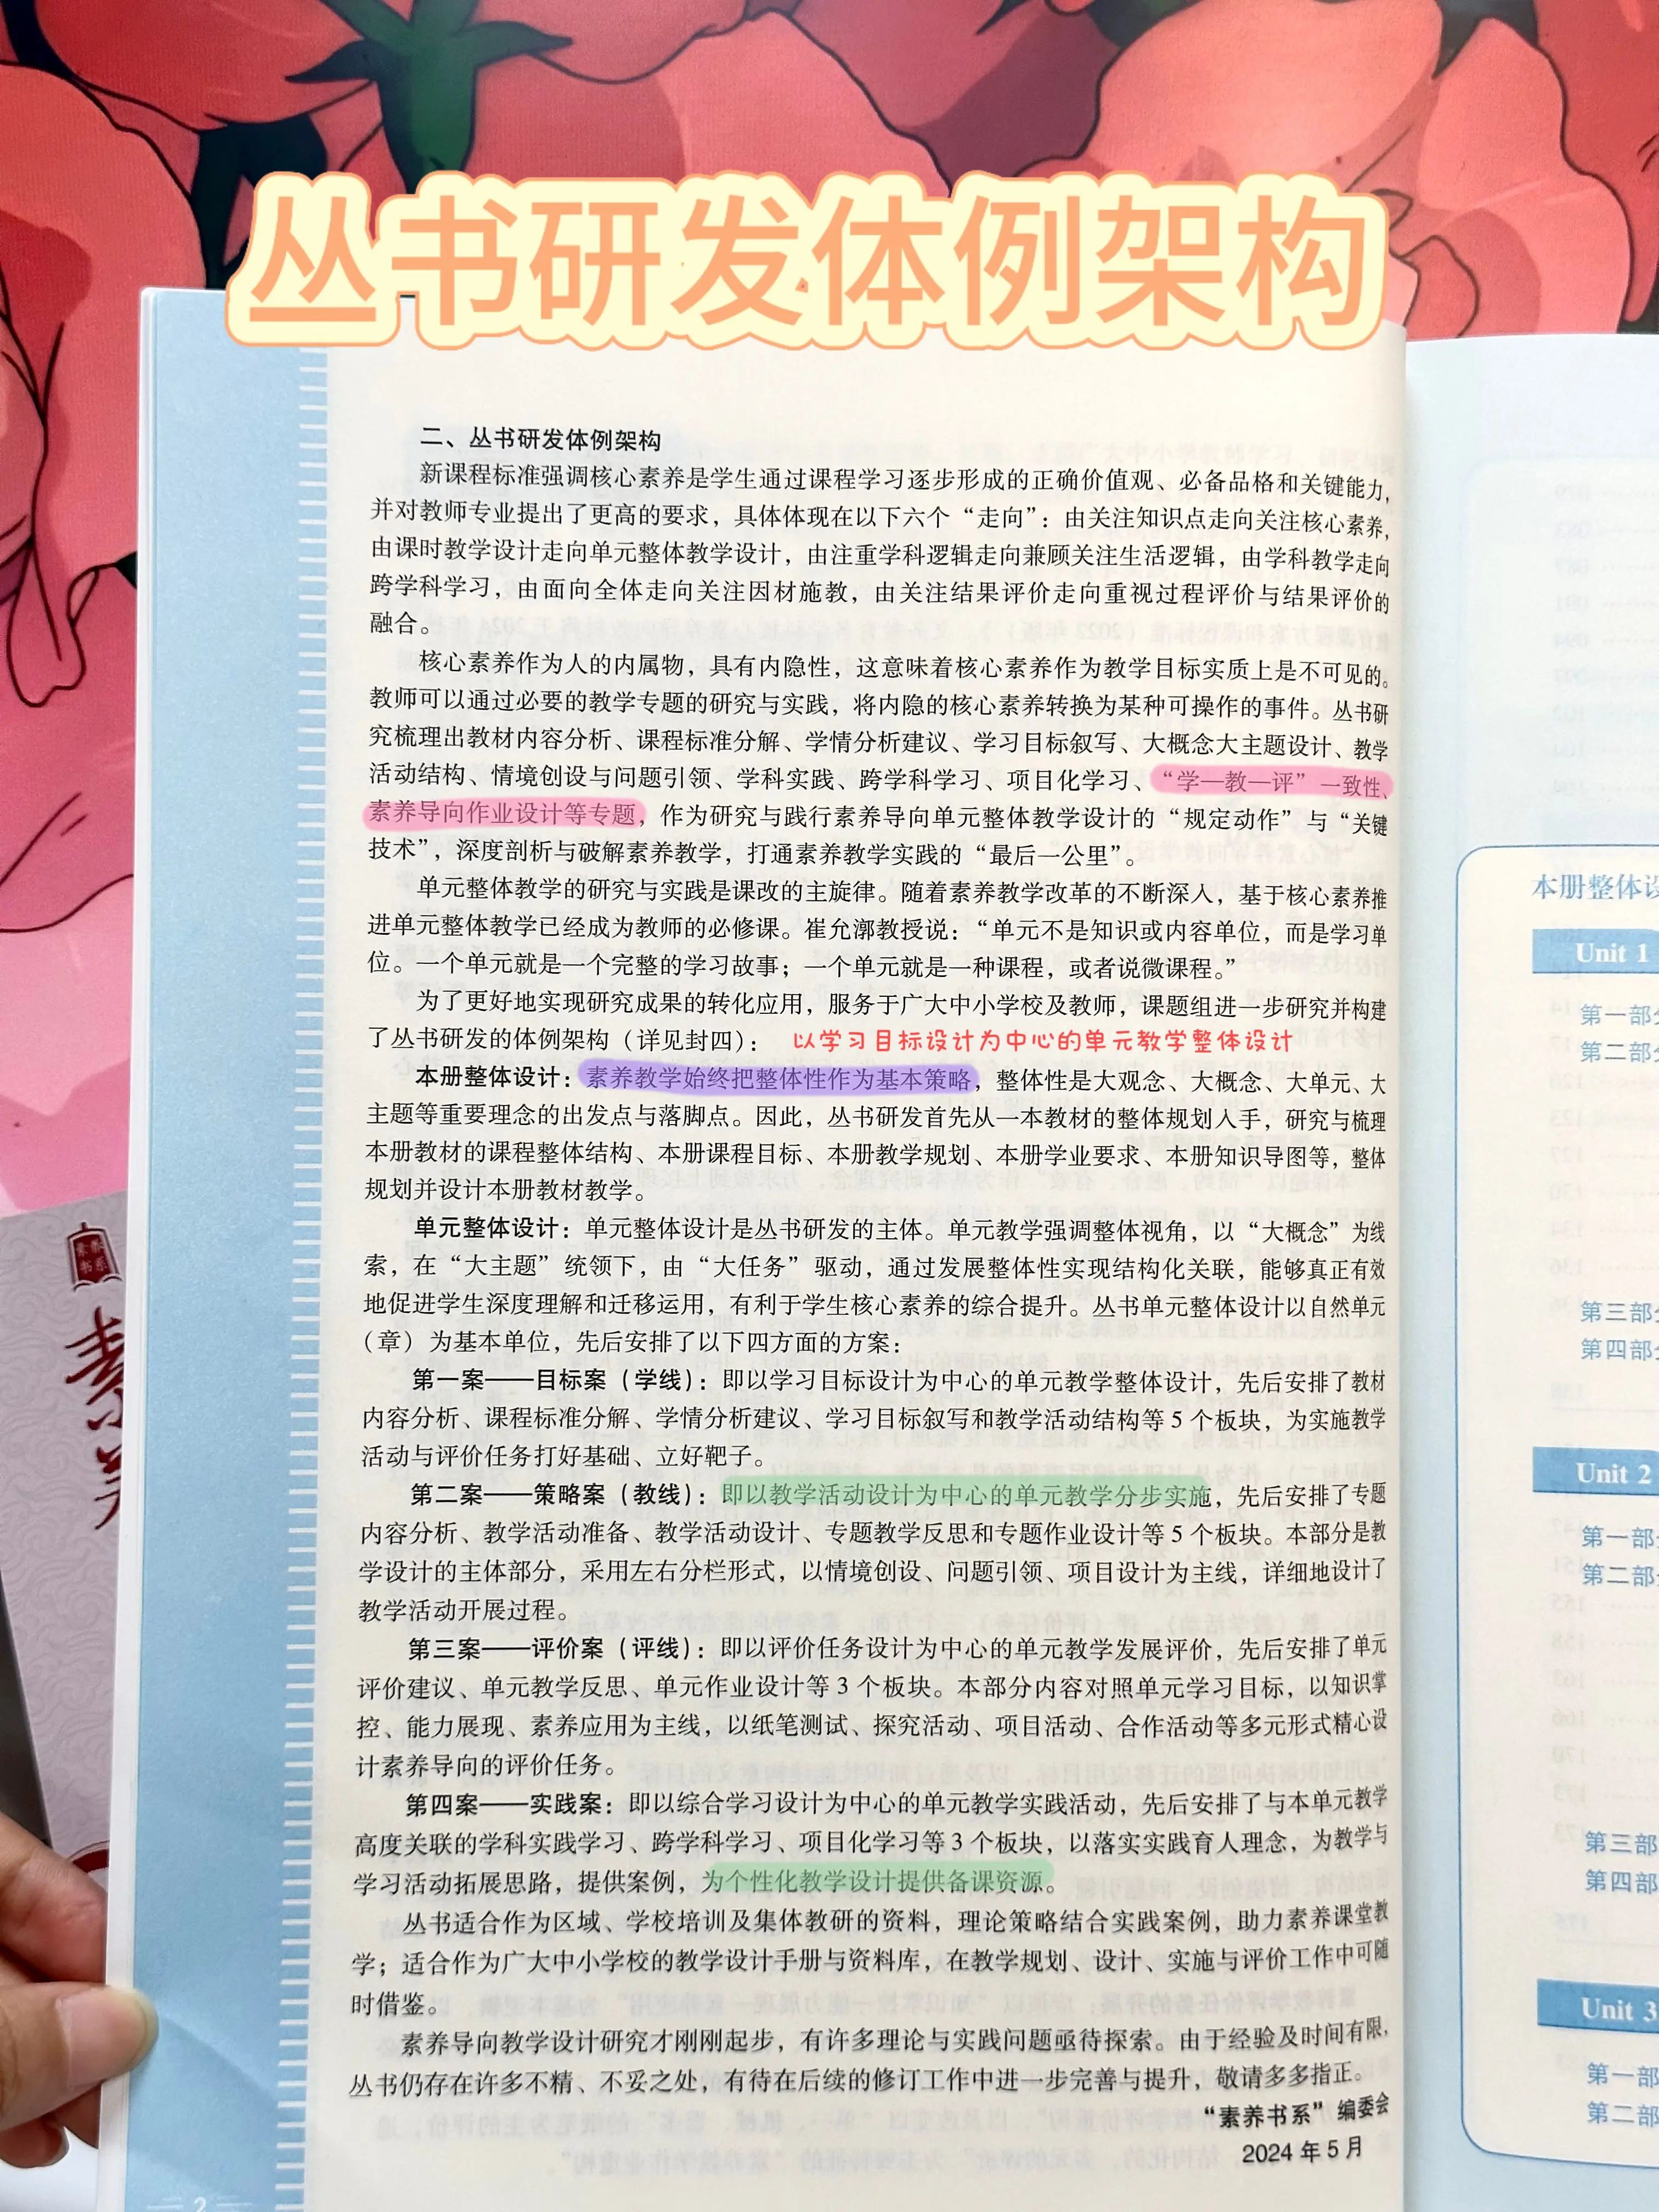 丛书研发体例架构
二、丛书研发体例架构
新课程标准强调核心素养是学生通过课程学习逐步形成的正确价值观、必备品格和关键能力，
并对教师专业提出了更高的要求，具体体现在以下六个“走向”：由关注知识点走向关注核心素养，
由课时教学设计走向单元整体教学设计，由注重学科逻辑走向兼顾关注生活逻辑，由学科教学走向
跨学科学习，由面向全体走向关注因材施教，由关注结果评价走向重视过程评价与结果评价的
融合。
核心素养作为人的内属物，具有内隐性，这意味着核心素养作为教学目标实质上是不可见的。
教师可以通过必要的教学专题的研究与实践，将内隐的核心素养转换为某种可操作的事件。丛书研
究梳理出教材内容分析、课程标准分解、学情分析建议、学习目标叙写、大概念大主题设计、教学
活动结构、情境创设与问题引领、学科实践、跨学科学习、项目化学习、“学—教—评”一致性、
素养导向作业设计等专题，作为研究与践行素养导向单元整体教学设计的“规定动作”与“关键
技术”，深度剖析与破解素养教学，打通素养教学实践的“最后一公里”。
单元整体教学的研究与实践是课改的主旋律。随着素养教学改革的不断深入，基于核心素养推
进单元整体教学已经成为教师的必修课。崔允漷教授说：“单元不是知识或内容单位，而是学习单
位。一个单元就是一个完整的学习故事；一个单元就是一种课程，或者说微课程。”
为了更好地实现研究成果的转化应用，服务于广大中小学校及教师，课题组进一步研究并构建
了丛书研发的体例架构（详见封四）： 以学习目标设计为中心的单元教学整体设计
本册整体设计：素养教学始终把整体性作为基本策略，整体性是大观念、大概念、大单元、大
主题等重要理念的出发点与落脚点。因此，丛书研发首先从一本教材的整体规划入手，研究与梳理
本册教材的课程整体结构、本册课程目标、本册教学规划、本册学业要求、本册知识导图等，整体
规划并设计本册教材教学。
单元整体设计：单元整体设计是丛书研发的主体。单元教学强调整体视角，以“大概念”为线
索，在“大主题”统领下，由“大任务”驱动，通过发展整体性实现结构化关联，能够真正有效
地促进学生深度理解和迁移运用，有利于学生核心素养的综合提升。丛书单元整体设计以自然单元
（章）为基本单位，先后安排了以下四方面的方案：
第一案——目标案（学线）：即以学习目标设计为中心的单元教学整体设计，先后安排了教材
内容分析、课程标准分解、学情分析建议、学习目标叙写和教学活动结构等 5 个板块，为实施教学
活动与评价任务打好基础、立好靶子。
第二案——策略案（教线）：即以教学活动设计为中心的单元教学分步实施，先后安排了专题
内容分析、教学活动准备、教学活动设计、专题教学反思和专题作业设计等 5 个板块。本部分是教
学设计的主体部分，采用左右分栏形式，以情境创设、问题引领、项目设计为主线，详细地设计了
教学活动开展过程。
第三案——评价案（评线）：即以评价任务设计为中心的单元教学发展评价，先后安排了单元
评价建议、单元教学反思、单元作业设计等 3 个板块。本部分内容对照单元学习目标，以知识掌
控、能力展现、素养应用为主线，以纸笔测试、探究活动、项目活动、合作活动等多元形式精心设
计素养导向的评价任务。
第四案——实践案：即以综合学习设计为中心的单元教学实践活动，先后安排了与本单元教学
高度关联的学科实践学习、跨学科学习、项目化学习等 3 个板块，以落实实践育人理念，为教学与
学习活动拓展思路，提供案例，为个性化教学设计提供备课资源。
丛书适合作为区域、学校培训及集体教研的资料，理论策略结合实践案例，助力素养课堂教
学；适合作为广大中小学校的教学设计手册与资料库，在教学规划、设计、实施与评价工作中可随
时借鉴。
素养导向教学设计研究才刚刚起步，有许多理论与实践问题亟待探索。由于经验及时间有限，
丛书仍存在许多不精、不妥之处，有待在后续的修订工作中进一步完善与提升，敬请多多指正。
“素养书系”编委会
2024 年 5 月
2
本册整体设
Unit 1
第一部分
第二部分
第三部分
第四部分
Unit 2
第一部分
第二部分
第三部
第四部
Unit 3
第一部
第二部